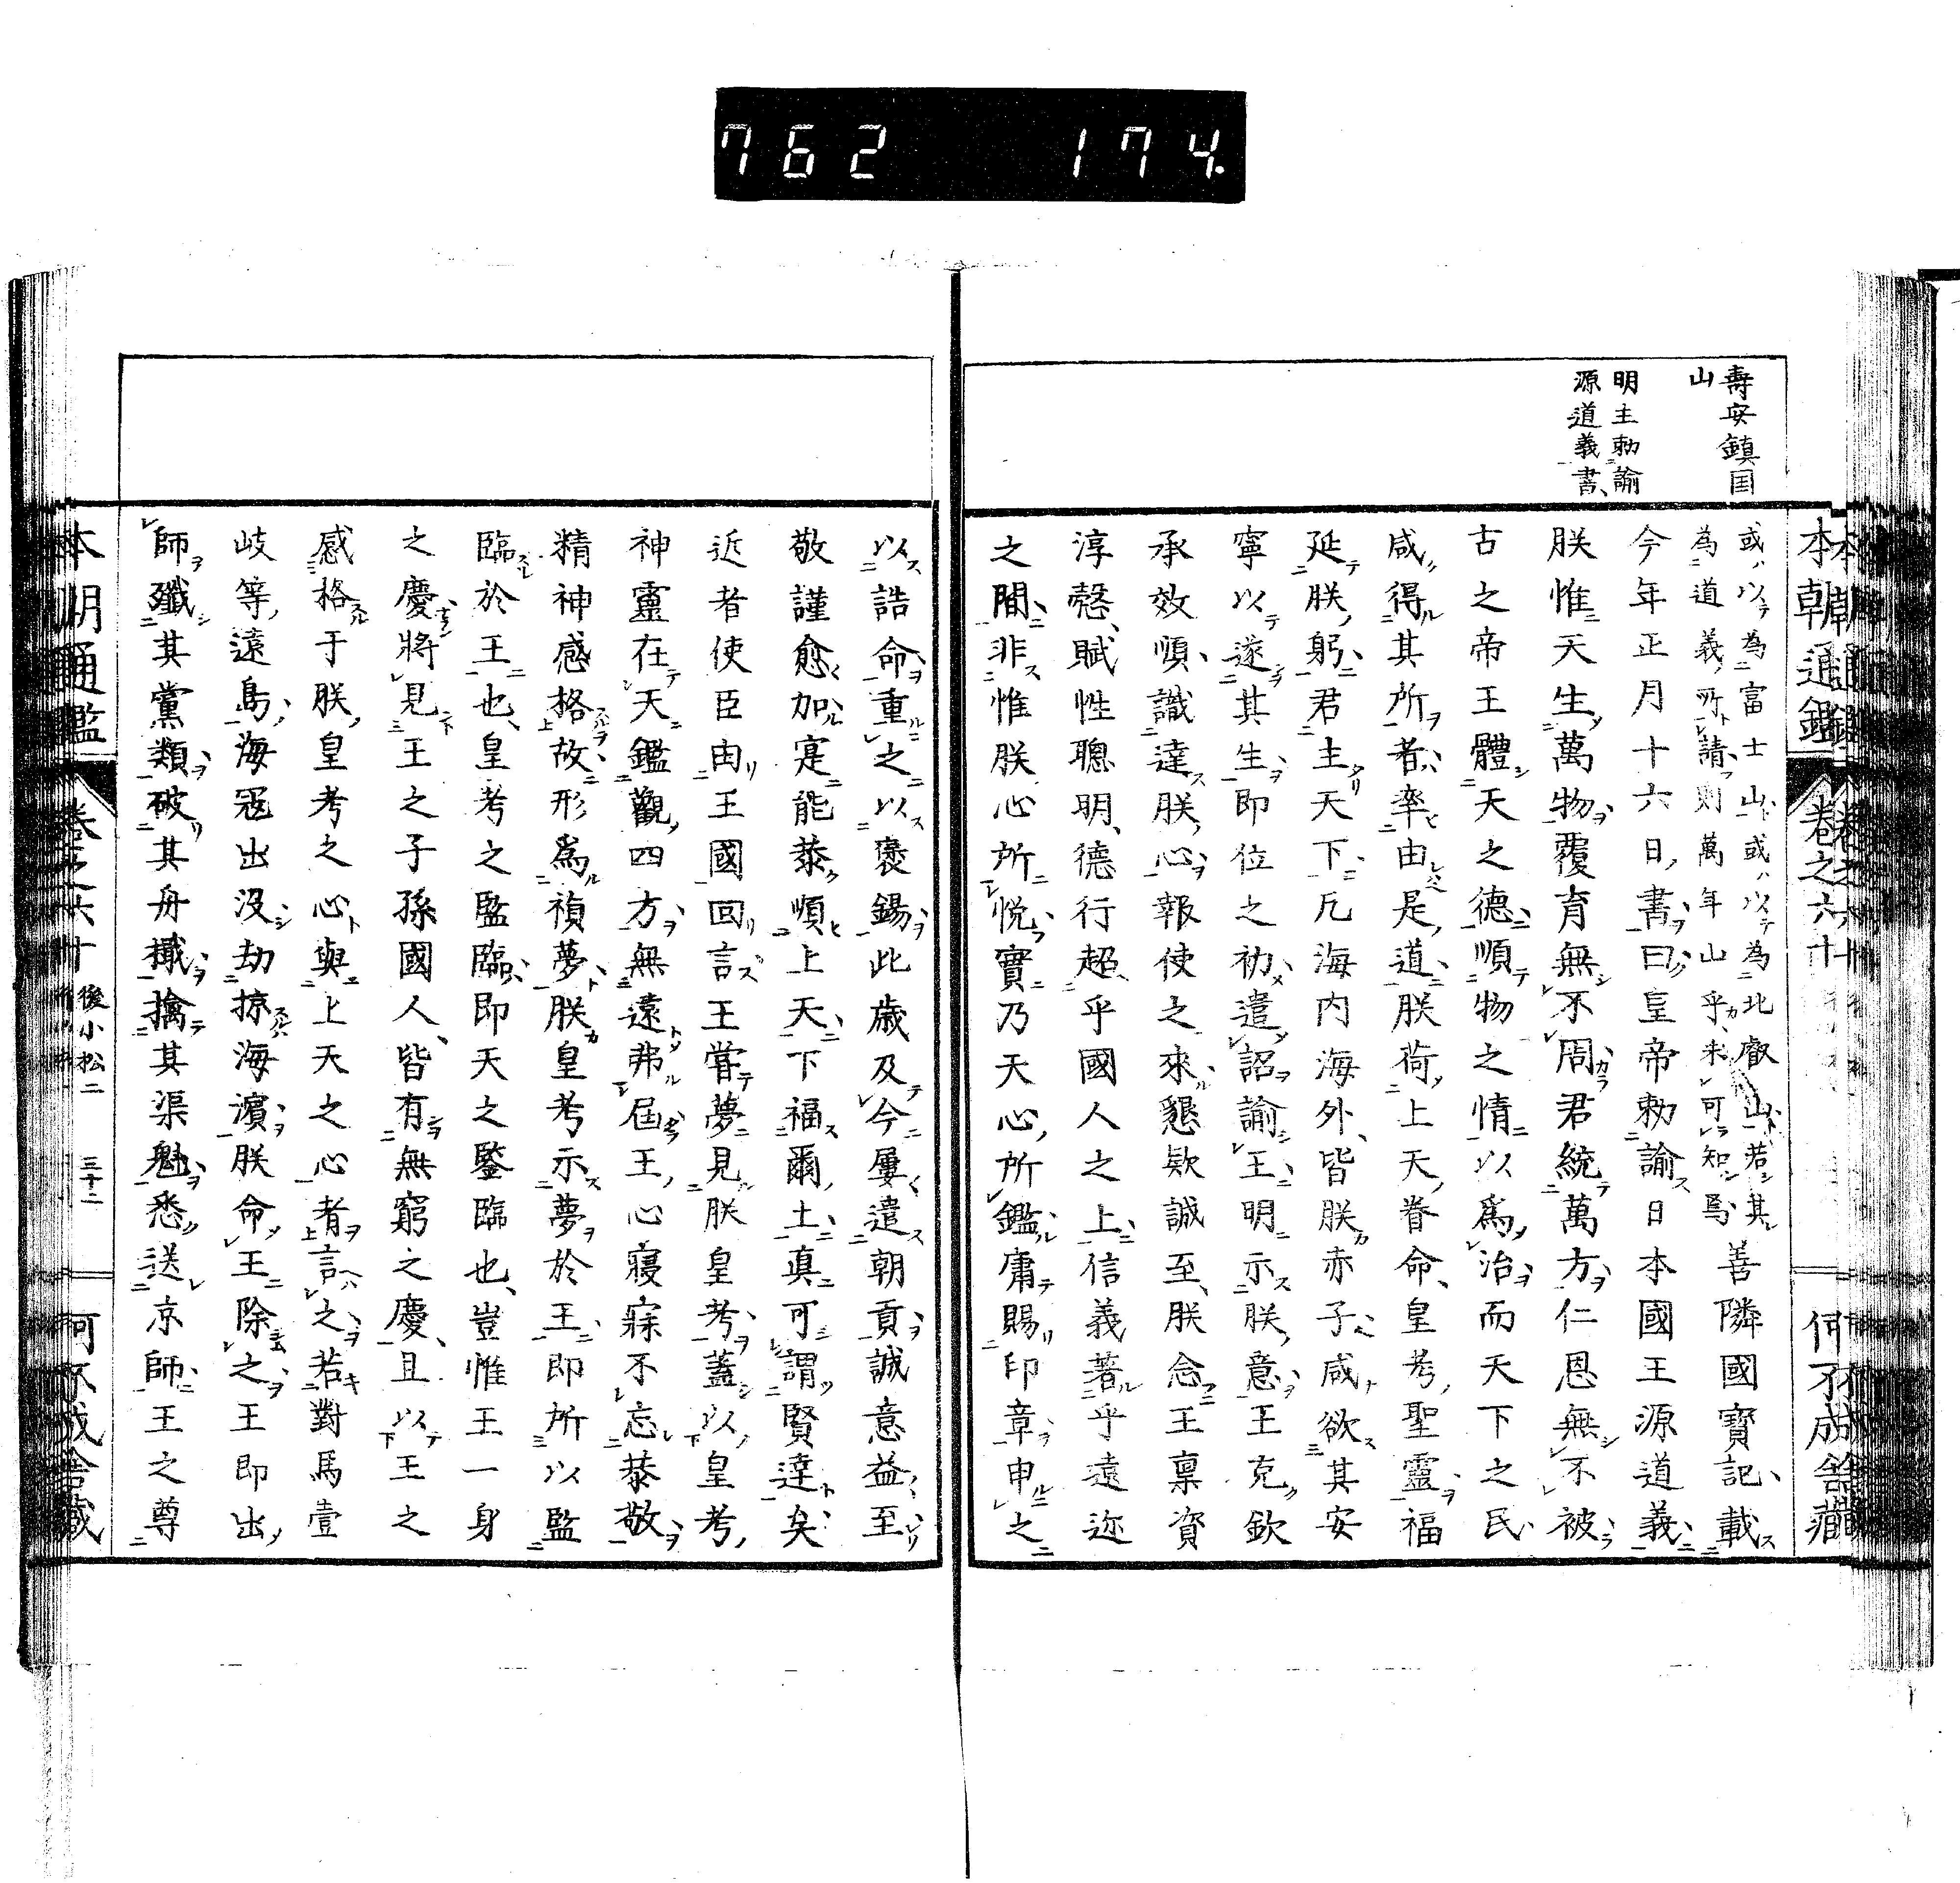 762 174.
壽安鎮国
山
明主勅諭
源道義書
本朝通鑑
卷之六十
何不成舍藏
或以為富士山或以為北叡山若其
為道義所請則萬年山乎未可知焉
善隣國寶記載
今年正月十六日書曰皇帝勅諭日本國王源道義
朕惟天生萬物覆育無不周君統萬方仁恩無不被
古之帝王體天之德順物之情以爲治而天下之民
咸得其所者率由是道朕荷上天眷命皇考聖靈福
延朕躬君主天下凡海内海外皆朕赤子咸欲其安
寧以遂其生即位之初遣詔諭王明示朕意王克欽
承效順識達朕心報使之來懇欵誠至朕念王稟資
淳慤賦性聰明德行超乎國人之上信義著乎遠迩
之間非惟朕心所悦實乃天心所鑑庸賜印章申之
以誥命重之以褒錫此歳及今屢遣朝貢誠意益至
敬謹愈加寔能恭順上天下福爾土真可謂賢達矣
近者使臣由王國回言王嘗夢見朕皇考蓋以皇考
神靈在天鑑觀四方無遠弗届王心寢寐不忘恭敬
精神感格故形爲禎夢朕皇考示夢於王即所以監
臨於王也皇考之監臨即天之鑒臨也豈惟王一身
之慶將見王之子孫國人皆有無窮之慶且以王之
感格于朕皇考之心與上天之心者言之若對馬壹
岐等遠島海寇出没劫掠海濵朕命王除之王即出
師殲其黨類破其舟檝擒其渠魁悉送京師王之尊
本朝通鑑
卷之六十
後小松二
三十二
何不成舍藏